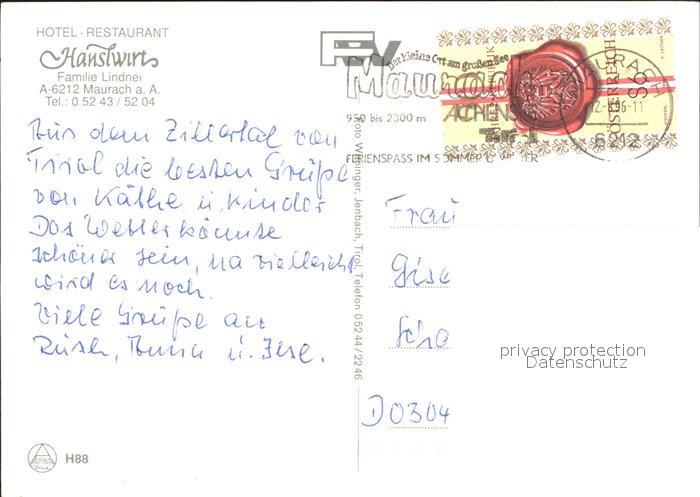 HOTEL-RESTAURANT
Hanslwirt
Familie Lindner
A-6212 Maurach a. A.
Tel.: 0 52 43 / 52 04
Aus dem Zillertal von
Tirol die besten Grüße
von Käthe u. Kinder
Das Wetter könnte
schöner sein, na vielleicht
wird es noch.
Viele Grüße an
Anna u. Ilse.
H88
Jenbach, Tirol, Telefon 0 52 44 / 22 46
Der kleine Ort am großen See
Maurach
950 bis 2300 m
FERIENSPASS IM SOMMER
REPUBLIK
ÖSTERREICH
S6
6212
Frau
D0304
privacy protection
Datenschutz